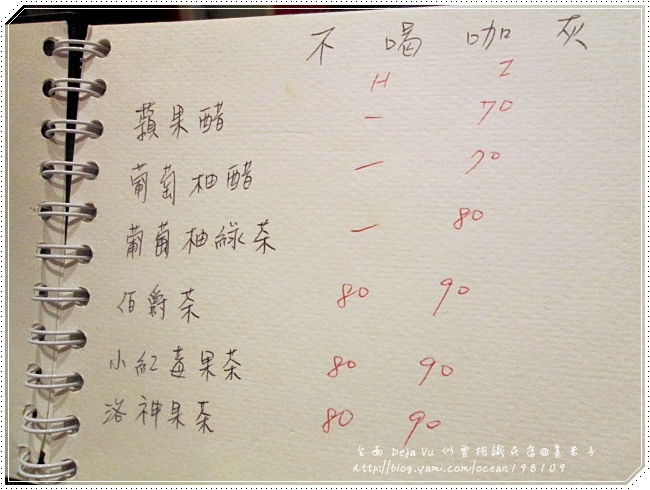 不喝咖灰
H I
蘋果醋 — 70
葡萄柚醋 — 70
葡萄柚綠茶 — 80
伯爵茶 80 90
小紅莓果茶 80 90
洛神果茶 80 90
台南 Deja Vu 似曾相識民宿@熹果子
http://blog.yam.com/ocean198109